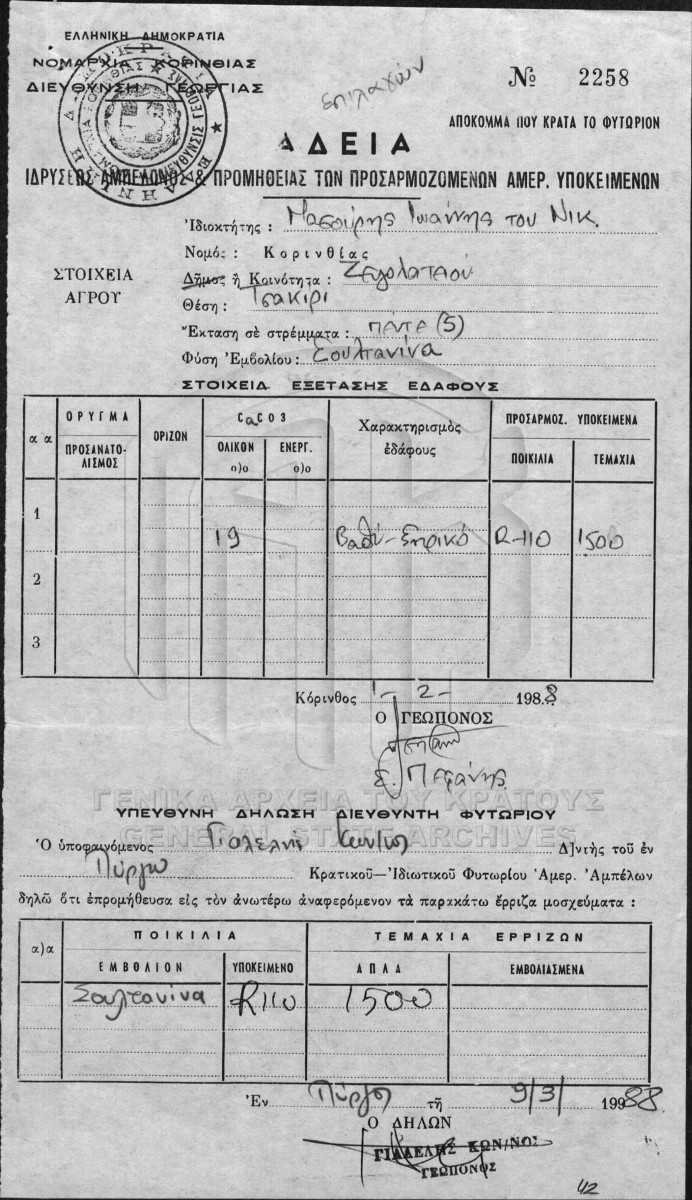 ΕΛΛΗΝΙΚΗ ΔΗΜΟΚΡΑΤΙΑ
ΝΟΜΑΡΧΙΑ ΚΟΡΙΝΘΙΑΣ
ΔΙΕΥΘΥΝΣΗ ΓΕΩΡΓΙΑΣ
№ 2258
ΑΠΟΚΟΜΜΑ ΠΟΥ ΚΡΑΤΑ ΤΟ ΦΥΤΩΡΙΟΝ
ΑΔΕΙΑ
ΙΔΡΥΣΕΩΣ ΑΜΠΕΛΩΝΟΣ & ΠΡΟΜΗΘΕΙΑΣ ΤΩΝ ΠΡΟΣΑΡΜΟΖΟΜΕΝΩΝ ΑΜΕΡ. ΥΠΟΚΕΙΜΕΝΩΝ
ΣΤΟΙΧΕΙΑ ΑΓΡΟΥ
Ἰδιοκτήτης : Μασούρης Ιωάννης του Νικ.
Νομός : Κορινθίας
Δῆμος ἢ Κοινότητα : Ζευγολατειού
Θέση : Τσακίρι
Ἔκταση σὲ στρέμματα : πέντε (5)
Φύση Ἐμβολίου : Σουλτανίνα
ΣΤΟΙΧΕΙΑ ΕΞΕΤΑΣΗΣ ΕΔΑΦΟΥΣ
α α ΟΡΥΓΜΑ ΟΡΙΖΩΝ CaCO3 Χαρακτηρισμὸς ἐδάφους ΠΡΟΣΑΡΜΟΖ. ΥΠΟΚΕΙΜΕΝΑ
ΠΡΟΣΑΝΑΤΟ-ΛΙΣΜΟΣ ΟΛΙΚΟΝ ο)ο ΕΝΕΡΓ. ο)ο ΠΟΙΚΙΛΙΑ ΤΕΜΑΧΙΑ
1
19 Βαθύ-ξηρικό R-110 1500
2
3
Κόρινθος 1-2-1988
Ο ΓΕΩΠΟΝΟΣ
ΓΕΝΙΚΑ ΑΡΧΕΙΑ ΤΟΥ ΚΡΑΤΟΥΣ
ΥΠΕΥΘΥΝΗ ΔΗΛΩΣΗ ΔΙΕΥΘΥΝΤΗ ΦΥΤΩΡΙΟΥ
GENERAL STATE ARCHIVES
Ὁ ὑποφαινόμενος Δ)ντὴς τοῦ ἐν
Πύργω Κρατικοῦ—Ἰδιωτικοῦ Φυτωρίου Ἀμερ. Ἀμπέλων
δηλῶ ὅτι ἐπρομήθευσα εἰς τὸν ἀνωτέρω ἀναφερόμενον τὰ παρακάτω ἔρριζα μοσχεύματα :
α)α ΠΟΙΚΙΛΙΑ ΤΕΜΑΧΙΑ ΕΡΡΙΖΩΝ
ΕΜΒΟΛΙΟΝ ΥΠΟΚΕΙΜΕΝΟ ΑΠΛΑ ΕΜΒΟΛΙΑΣΜΕΝΑ
Σουλτανίνα R110 1500
Ἐν Πύργω τῇ 9/3/ 19988
Ο ΔΗΛΩΝ
ΓΙΑΛΕΛΗΣ ΚΩΝ/ΝΟΣ
ΓΕΩΠΟΝΟΣ
42